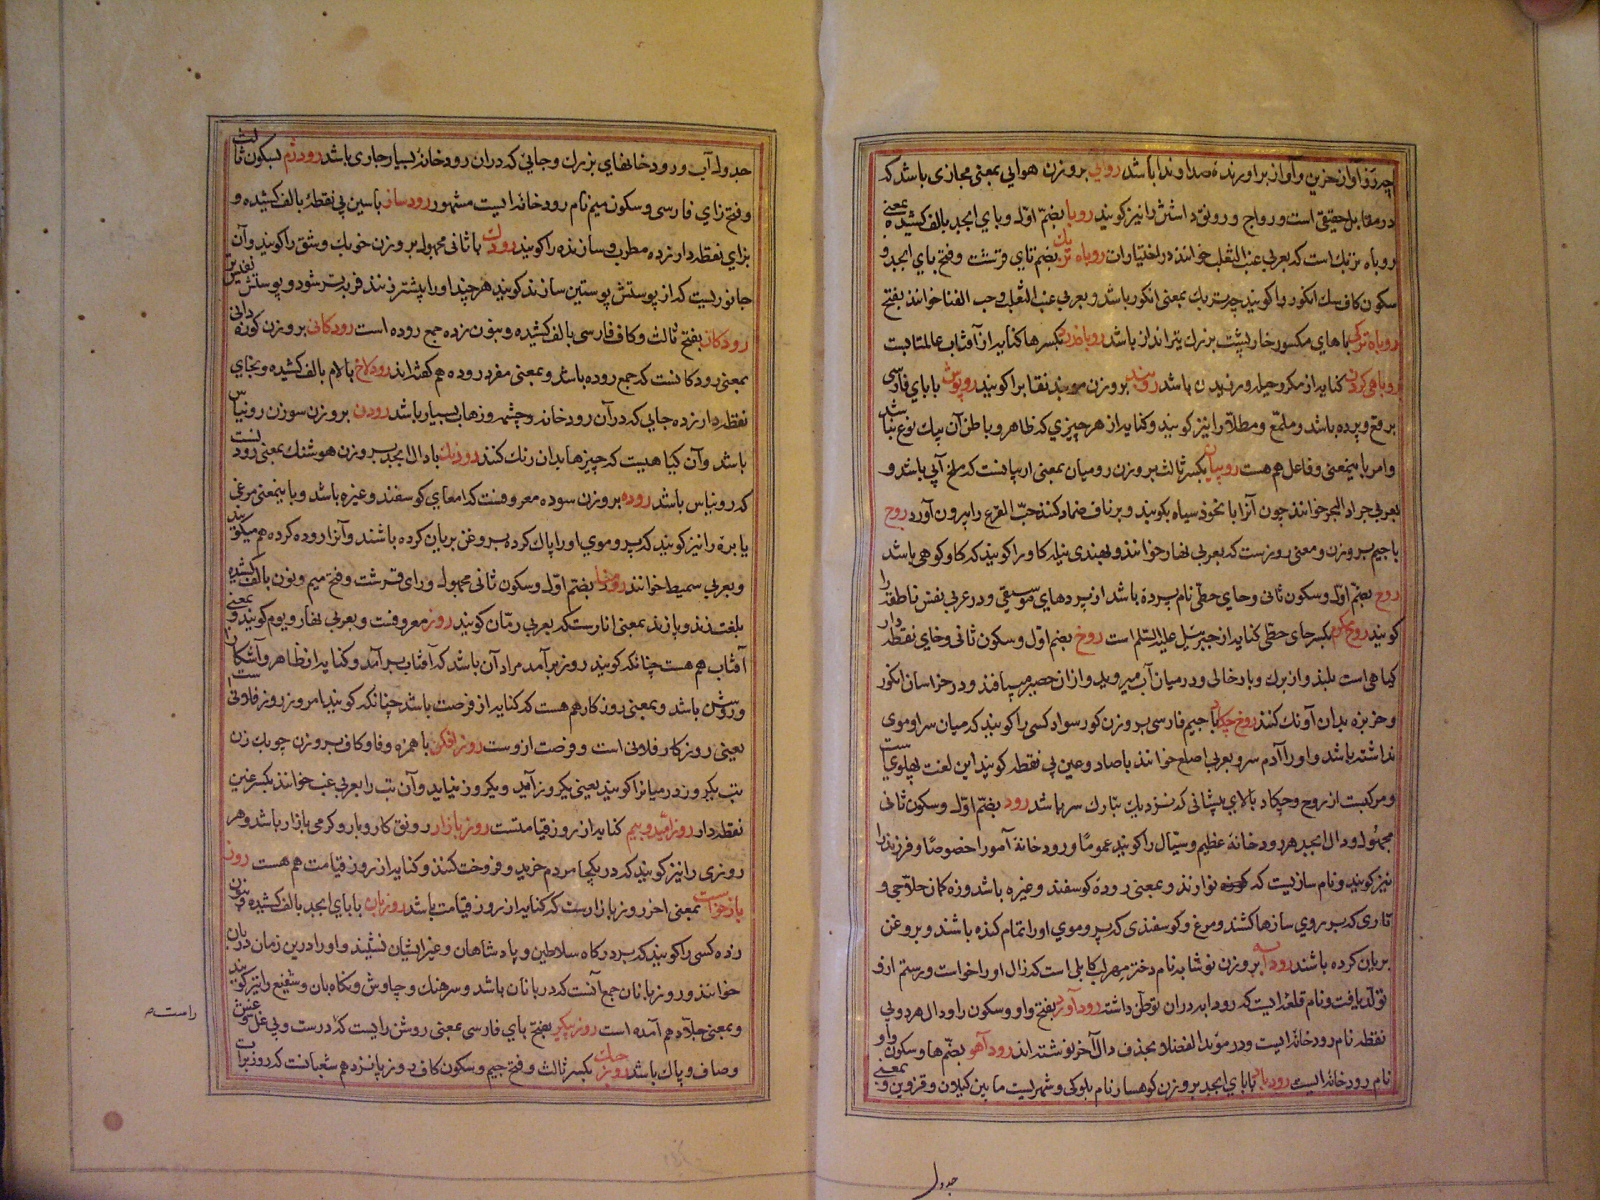 چه رَز آواز حزین و آواز براورندهٔ صدا و ندا باشد روایی بروزن هوایی بمعنی مجازی باشد که
در مقابل حقیقی است و رواج و رونق داشتن را نیز کویند روبا بضمّ اوّل و بای ابجد بالف کشیده بمعنی
روباه تربك است که بعربی عنب الثعلب خوانند در اختیارات روباه تربك بضم تای قرشت و فتح بای ابجد و
سکون کاف سك انکور را کویند چه تربك بمعنی انکور باشد و بعربی عنب الثعلب و حب الفنا خوانند بفتح
روباه ترکی باهای مکسور خارپشت بزرك تیرانداز باشد روباه زرد بکسرها کنایه از آفتاب عالمتابست
روباهی کردن کنایه از مکر و حیله ورزیدن باشد روبند بروزن سوبند نقاب را کویند روپوش با بای فارسی
برقع و پرده باشد و ملمّع و مطلّا را نیز کویند و کنایه از هر چیزی که ظاهر و باطن آن بیك نوع نباشد
و امر باینمعنی و فاعل هم هست روبیان بکسر ثالث بروزن رومیان بمعنی اربیانست که ملخ آبی باشد و
بعربی جراد البحر خوانند چون آنرا با نخود سیاه بکوبند و بر ناف ضماد کنند حبّ القرع را بیرون آورد روج
با جیم بروزن و معنی روزست که بعربی نهار خوانند و بهندی نیله کاو را کویند که کاو کوهی باشد
روح بضمّ اوّل و سکون ثانی و حای حطّی نام پرده باشد از پردهای موسیقی و در عربی نفس ناطقه را
کویند روح مکرم بکسر حای حطّی کنایه از جبرئیل علیه السّلم است روخ بضم اوّل و سکون ثانی و خای نقطه دار
کیاهی است بلند و از برك و بار خالی و در میان آب میروید و از ان حصیر میبافند و در خراسان انکور
و خربزه بدان آونك کنند روخ چکاد با جیم فارسی بروزن کور سواد کسی را کویند که میان سر او موی
نداشته باشد و او را آدم سر و بعربی اصلع خوانند با صاد و عین بی نقطه کویند این لغت پهلوی است
و مرکبست از روخ و چکاد بالای پیشانی که نزدیك بتارك سر باشد رود بضمّ اوّل و سکون ثانی
مجهول و دال ابجد هر رودخانهٔ عظیم و سیّال را کویند عموما و رودخانهٔ آمو را خصوصا و فرزند را
نیز کویند و نام سازیست که نوازند و بمعنی رودهٔ کوسفند و غیره باشد و زه کمان حلاجی و
تاری که بر روی سازها کشند و مرغ و کوسفندی که پر و موی او را تمام کنده باشند و بروغن
بریان کرده باشند رودابه بروزن نوشابه نام دختر مهراب کابلی است که زال او را خواست و رستم ازو
تولّد یافت و نام قلعهٔ ایست که رودابه در ان توطّن داشته رودآورد بفتح واو و سکون را و دال هر دو بی
نقطه نام رودخانهٔ ایست و در مؤید الفضلا بحذف دال آخر نوشته اند رودآهو بضمّ ها و سکون واو
نام رودخانهٔ ایست رودبار با بای ابجد بروزن کوهسار نام بلوکی و شهریست ما بین کیلان و قزوین و بمعنی
جدول
جدول آب و رودخانهای بزرك و جایی که در ان رودخانهٔ بسیار جاری باشد رودزم بسکون ثالث
و فتح زای فارسی و سکون میم نام رودخانهٔ ایست مشهور رودساز با سین بی نقطهٔ بالف کشیده و
بزای نقطه دار زده مطرب و سازنده را کویند رودك با ثانی مجهول بروزن خوبك وشق را کویند و آن
جانوریست که از پوستش پوستین سازند کویند هر چند او را بیشتر زنند فربه تر شود و پوستش نفیس تر
رودکان بفتح ثالث و کاف فارسی بالف کشیده و بنون زده جمع روده است رودکانی بروزن کودکانی
بمعنی رودکانست که جمع روده باشد و بمعنی مفرد روده هم کفته اند رودلاخ با لام بالف کشیده و بخای
نقطه دار زده جایی که در آن رودخانه و چشمه و زهاب بسیار باشد رودن بروزن سوزن روناس
باشد و آن کیاهیست که چیزها بدان رنك کنند رودنك با دال ابجد بروزن هوشنك بمعنی رودنست
که روناس باشد روده بروزن سوده معروفست که امعای کوسفند و غیره باشد و باینمعنی مرغی
یا بره را نیز کویند که پر و موی او را پاك کرده بروغن بریان کرده باشند و آنرا روده کرده هم میکویند
و بعربی سمیط خوانند رورمنا بضم اوّل و سکون ثانی مجهول و رای قرشت و فتح میم و نون بالف کشیده
بلغت زند و پازند بمعنی انارست که بعربی رمّان کویند روز معروفست و بعربی نهار و یوم کویند و بمعنی
آفتاب هم هست چنانکه کویند روز برآمد مراد آن باشد که آفتاب برآمد و کنایه از ظاهر و آشکارا
و روشن باشد و بمعنی روزکار هم هست که کنایه از فرصت باشد چنانکه کویند امروز روز فلانی است
یعنی روزکار فلانی است و فرصت ازوست روز افکن با همزه و فا و کاف بروزن چوبك زن
تب یکروز در میانرا کویند یعنی یکروز آید و یکروز نیاید و آن تب را بعربی غب خوانند بکسر غین
نقطه دار روز امید و بیم کنایه از روز قیامتست روز بازار رونق کار و بار و کرمی بازار باشد و هر
روزی را نیز کویند که در یکجا مردم خرید و فروخت کنند و کنایه از روز قیامت هم هست روز
بازخواست بمعنی اخر روز بازارست که کنایه از روز قیامت باشد روزبان با بای ابجد بالف کشیده و بنون
زده کسی را کویند که بر درکاه سلاطین و پادشاهان و غیر ایشان نشیند و او را درین زمان دربان
خوانند و روزبانان جمع آنست که دربانان باشد و سرهنك و چاوش و نکاه بان و شفیع را نیز کویند
و بمعنی جلّاد هم آمده است روز پیکر بفتح بای فارسی بمعنی روشن رایست که درست و بی غل و غش
و صاف و پاك باشد روز چك بکسر ثالث و فتح جیم و سکون کاف روز پانزدهم شعبانست که روز برات
راست